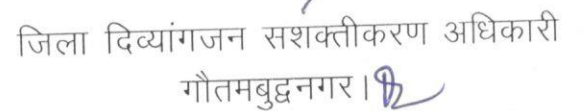 जिला दिव्यांगजन सशक्तीकरण अधिकारी
गौतमबुद्धनगर।